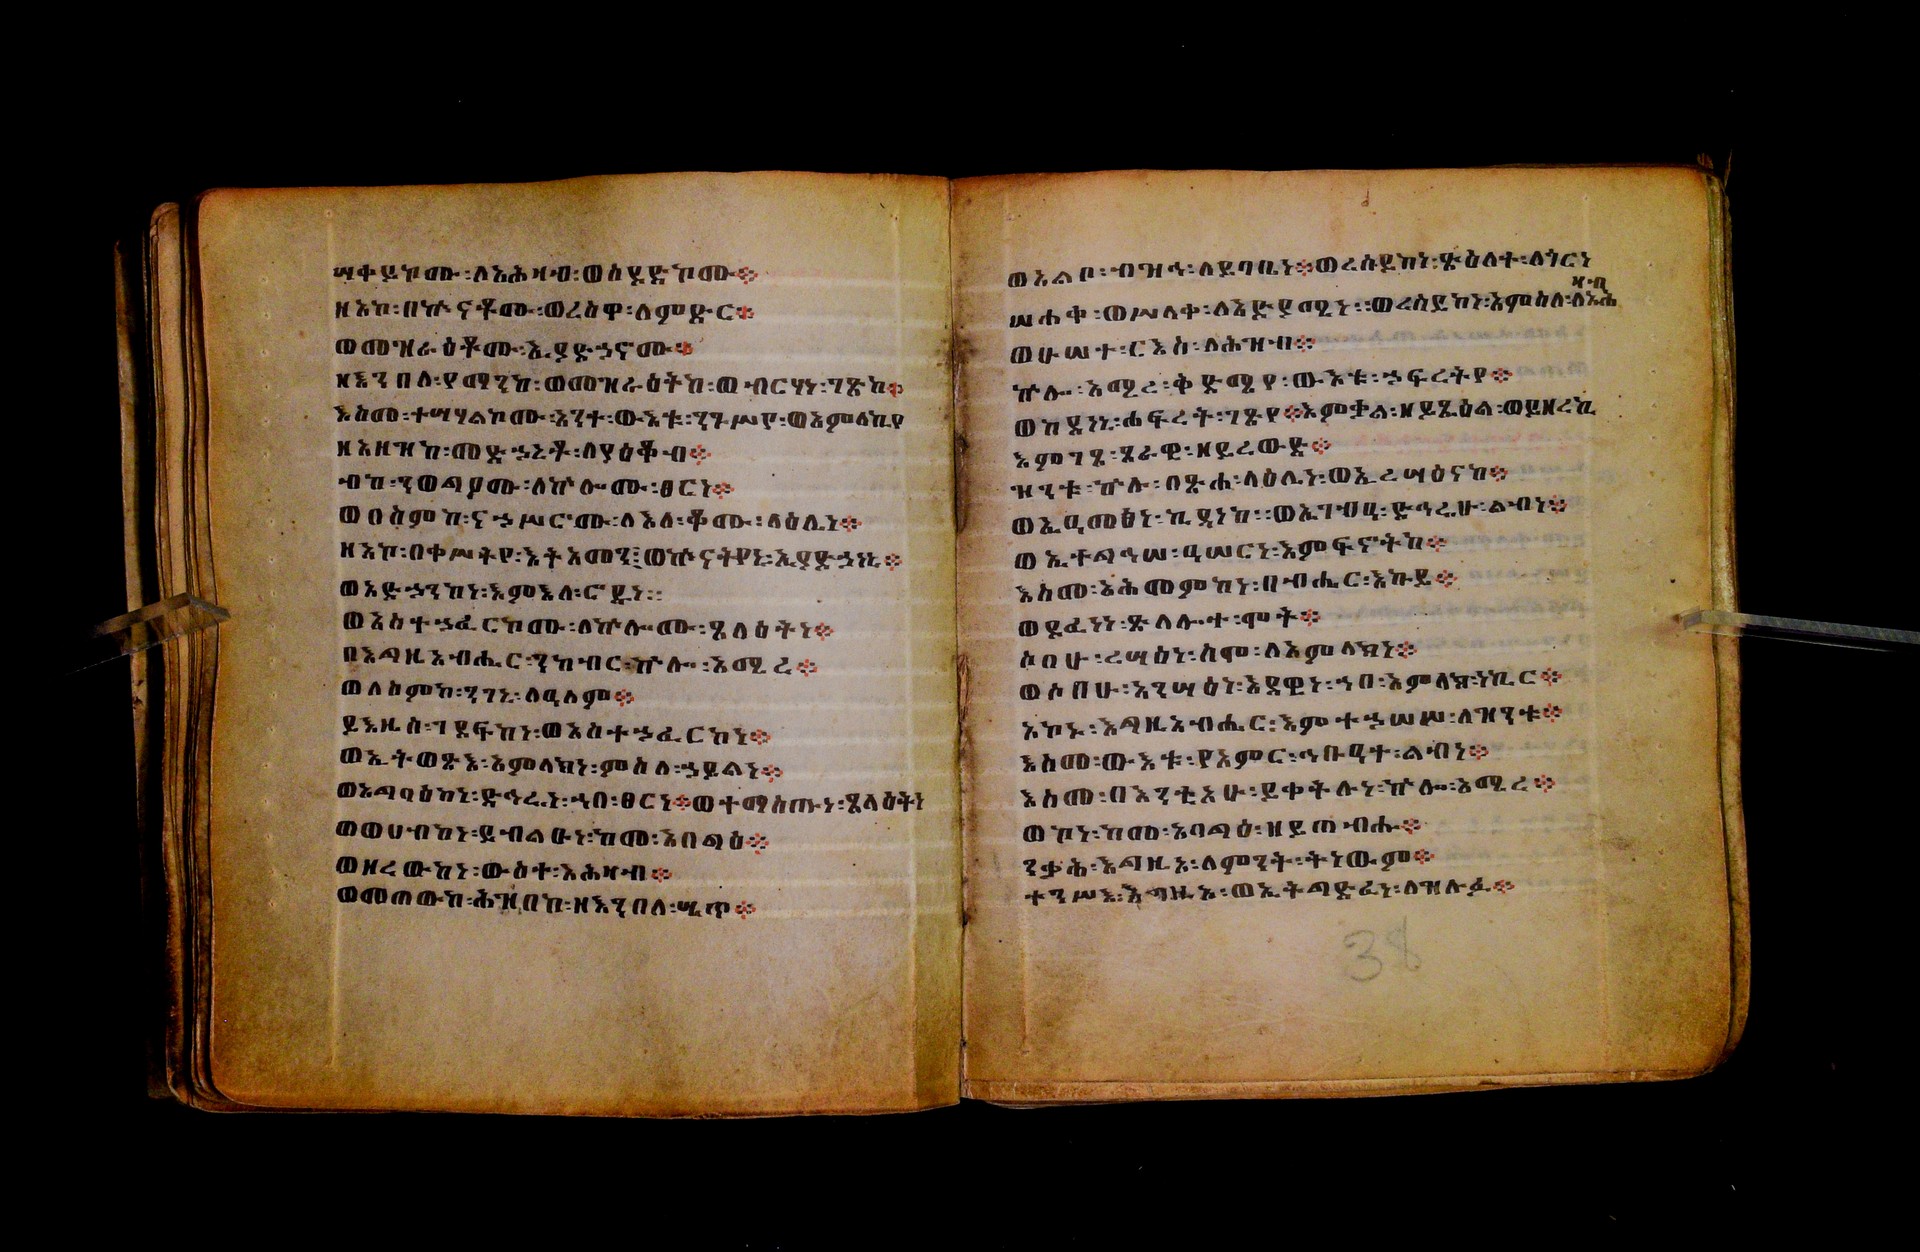 ሣቀይኮሙ፡ለአሕዛብ፡ወሰደድኮሙ፨
ዘአኮ፡በኵናቶሙ፡ወረስዋ፡ለምድር፨
ወመዝራዕቶሙ፡ኢያድኃኖሙ፨
ዘእንበለ፡የማንከ፡ወመዝራዕትከ፡ወብርሃነ፡ገጽከ፨
እስመ፡ተሣሃልኮሙ፡አንተ፡ውእቱ፡ንጉሥየ፡ወአምላኪየ
ዘአዘዝከ፡መድኃኒቶ፡ለያዕቆብ፨
ብከ፡ንወግዖሙ፡ለኵሎሙ፡ፀርነ፨
ወበስምከ፡ናኃሥሮሙ፡ለእለ፡ቆሙ፡ላዕሌነ፨
ዘአኮ፡በቀሥትየ፡እትአመን፤ወኵናትየኒ፡ኢያድኃነኒ፨
ወአድኃንከነ፡እምእለ፡ሮዱነ።
ወአስተኃፈርኮሙ፡ለኵሎሙ፡ጸላዕትነ፨
በእግዚአብሔር፡ንከብር፡ኵሎ፡አሚረ፨
ወለስምከ፡ንገኒ፡ለዓለም፨
ይእዜሰ፡ገደፍከነ፡ወአስተኃፈርከነ፨
ወኢትወጽእ፡አምላክነ፡ምስለ፡ኃይልነ፨
ወአግባዕከነ፡ድኅሬነ፡ኀበ፡ፀርነ፨ወተማሰጡነ፡ጸላዕትነ
ወወሀብከነ፡ይብልዑነ፡ከመ፡አበግዕ፨
ወዘረውከነ፡ውስተ፡አሕዛብ፨
ወመጠውከ፡ሕዝበከ፡ዘእንበለ፡ሤጥ፨
ወአልቦ፡ብዝኀ፡ለይባቤነ፨ወረሰይከነ፡ጽዕለተ፡ለጎርነ
ሠሐቀ፡ወሥላቀ፡ለአድያሚነ፡፡ወረሰይከነ፡አምሳለ፡ለአሕዛብ
ወሁሠተ፡ርእስ፡ለሕዝብ፨
ኵሎ፡አሚረ፡ቅድሜየ፡ውእቱ፡ኃፍረትየ፨
ወከደነኒ፡ሐፍረት፡ገጽየ፨እምቃል፡ዘይጼዕል፡ወይዘረኪ
እምገጸ፡ጸራዊ፡ዘይረውድ፨
ዝንቱ፡ኵሉ፡በጽሐ፡ላዕሌነ፡ወኢረሣዕናከ፨
ወኢዓመፅነ፡ኪዳነከ፡፡ወኢገብዓ፡ድኅሬሁ፡ልብነ፨
ወኢተግኅሠ፡ዓሠርነ፡እምፍኖትከ፨
እስመ፡አሕመምከነ፡በብሔር፡እኩይ፨
ወደፈነነ፡ጽላሎተ፡ሞት፨
ሶበሁ፡ረሣዕነ፡ስሞ፡ለአምላክነ፨
ወሶበሁ፡አንሣዕነ፡እደዊነ፡ኀበ፡አምላክ፡ነኪር፨
አኮኑ፡እግዚአብሔር፡እምተኃሠሦ፡ለዝንቱ፨
እስመ፡ውእቱ፡የአምር፡ኅቡዓተ፡ልብነ፨
እስመ፡በእንቲአሁ፡ይቀትሉነ፡ኵሎ፡አሚረ፨
ወኮነ፡ከመ፡አባግዕ፡ዘይጠብሑ፨
ንቃሕ፡እግዚኦ፡ለምንት፡ትነውም፨
ተንሥእ፡እግዚኦ፡ወኢትግድፈነ፡ለዝሉፉ፨
38